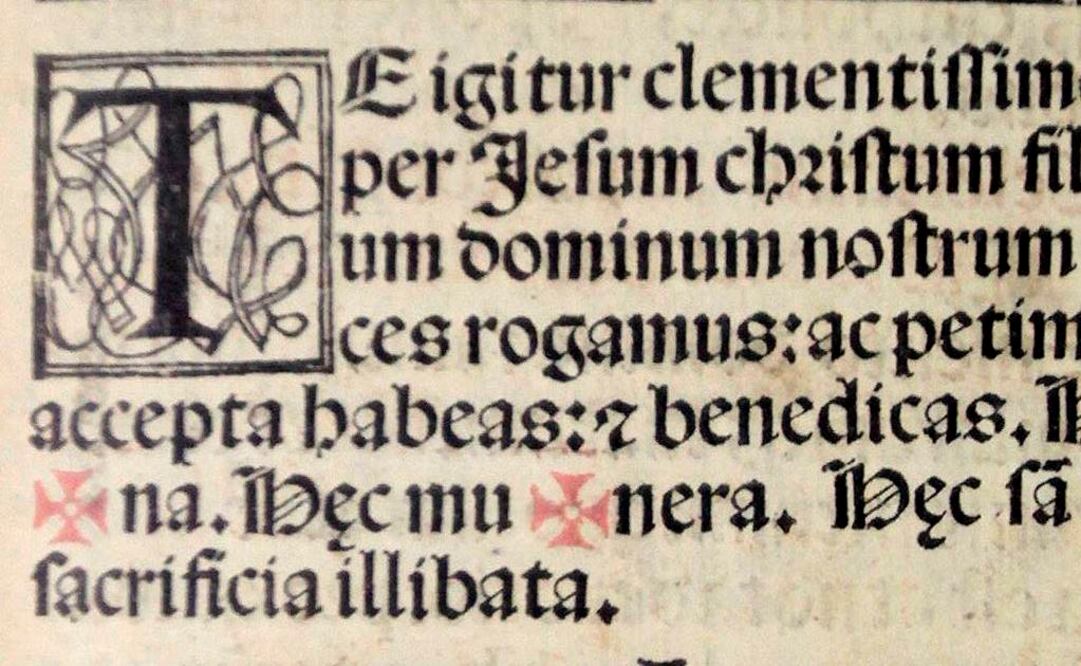 TE igitur clementiſſim
per Jeſum chꝛiſtum fil
um dominum noſtrum
ces rogamus: ac petim
accepta habeas: ⁊ benedicas. H
✠ na. Hęc mu ✠ nera. Hęc ſã
ſacrificia illibata.